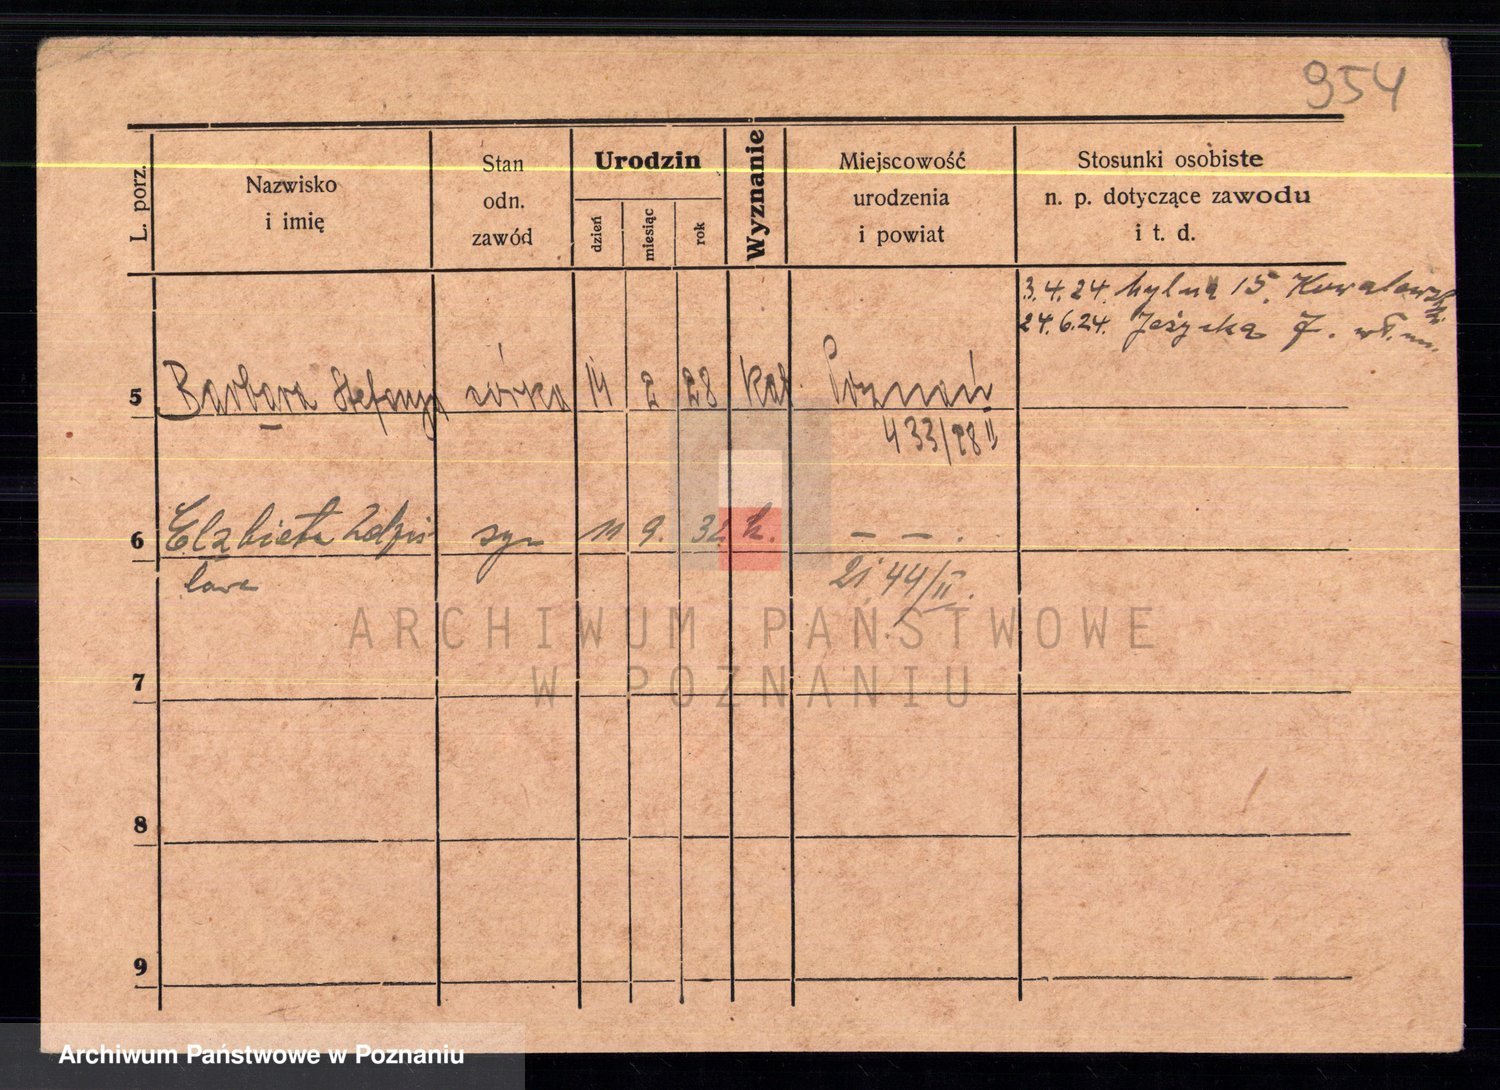 954
L. porz.
Nazwisko
i imię
Stan
odn.
zawód
Urodzin
dzień
miesiąc
rok
Wyznanie
Miejscowość
urodzenia
i powiat
Stosunki osobiste
n. p. dotyczące zawodu
i t. d.
3.4.24. 15.
24.6.24. Jeżycka 7.
5 Barbara Stefanja córka 14 2 28 kat Poznań
433/28 II
6 Elżbieta Zdzis- syn 11 9. 32 k. — — .
lawa
2144/II.
7
8
9
ARCHIWUM PAŃSTWOWE
W POZNANIU
Archiwum Państwowe w Poznaniu